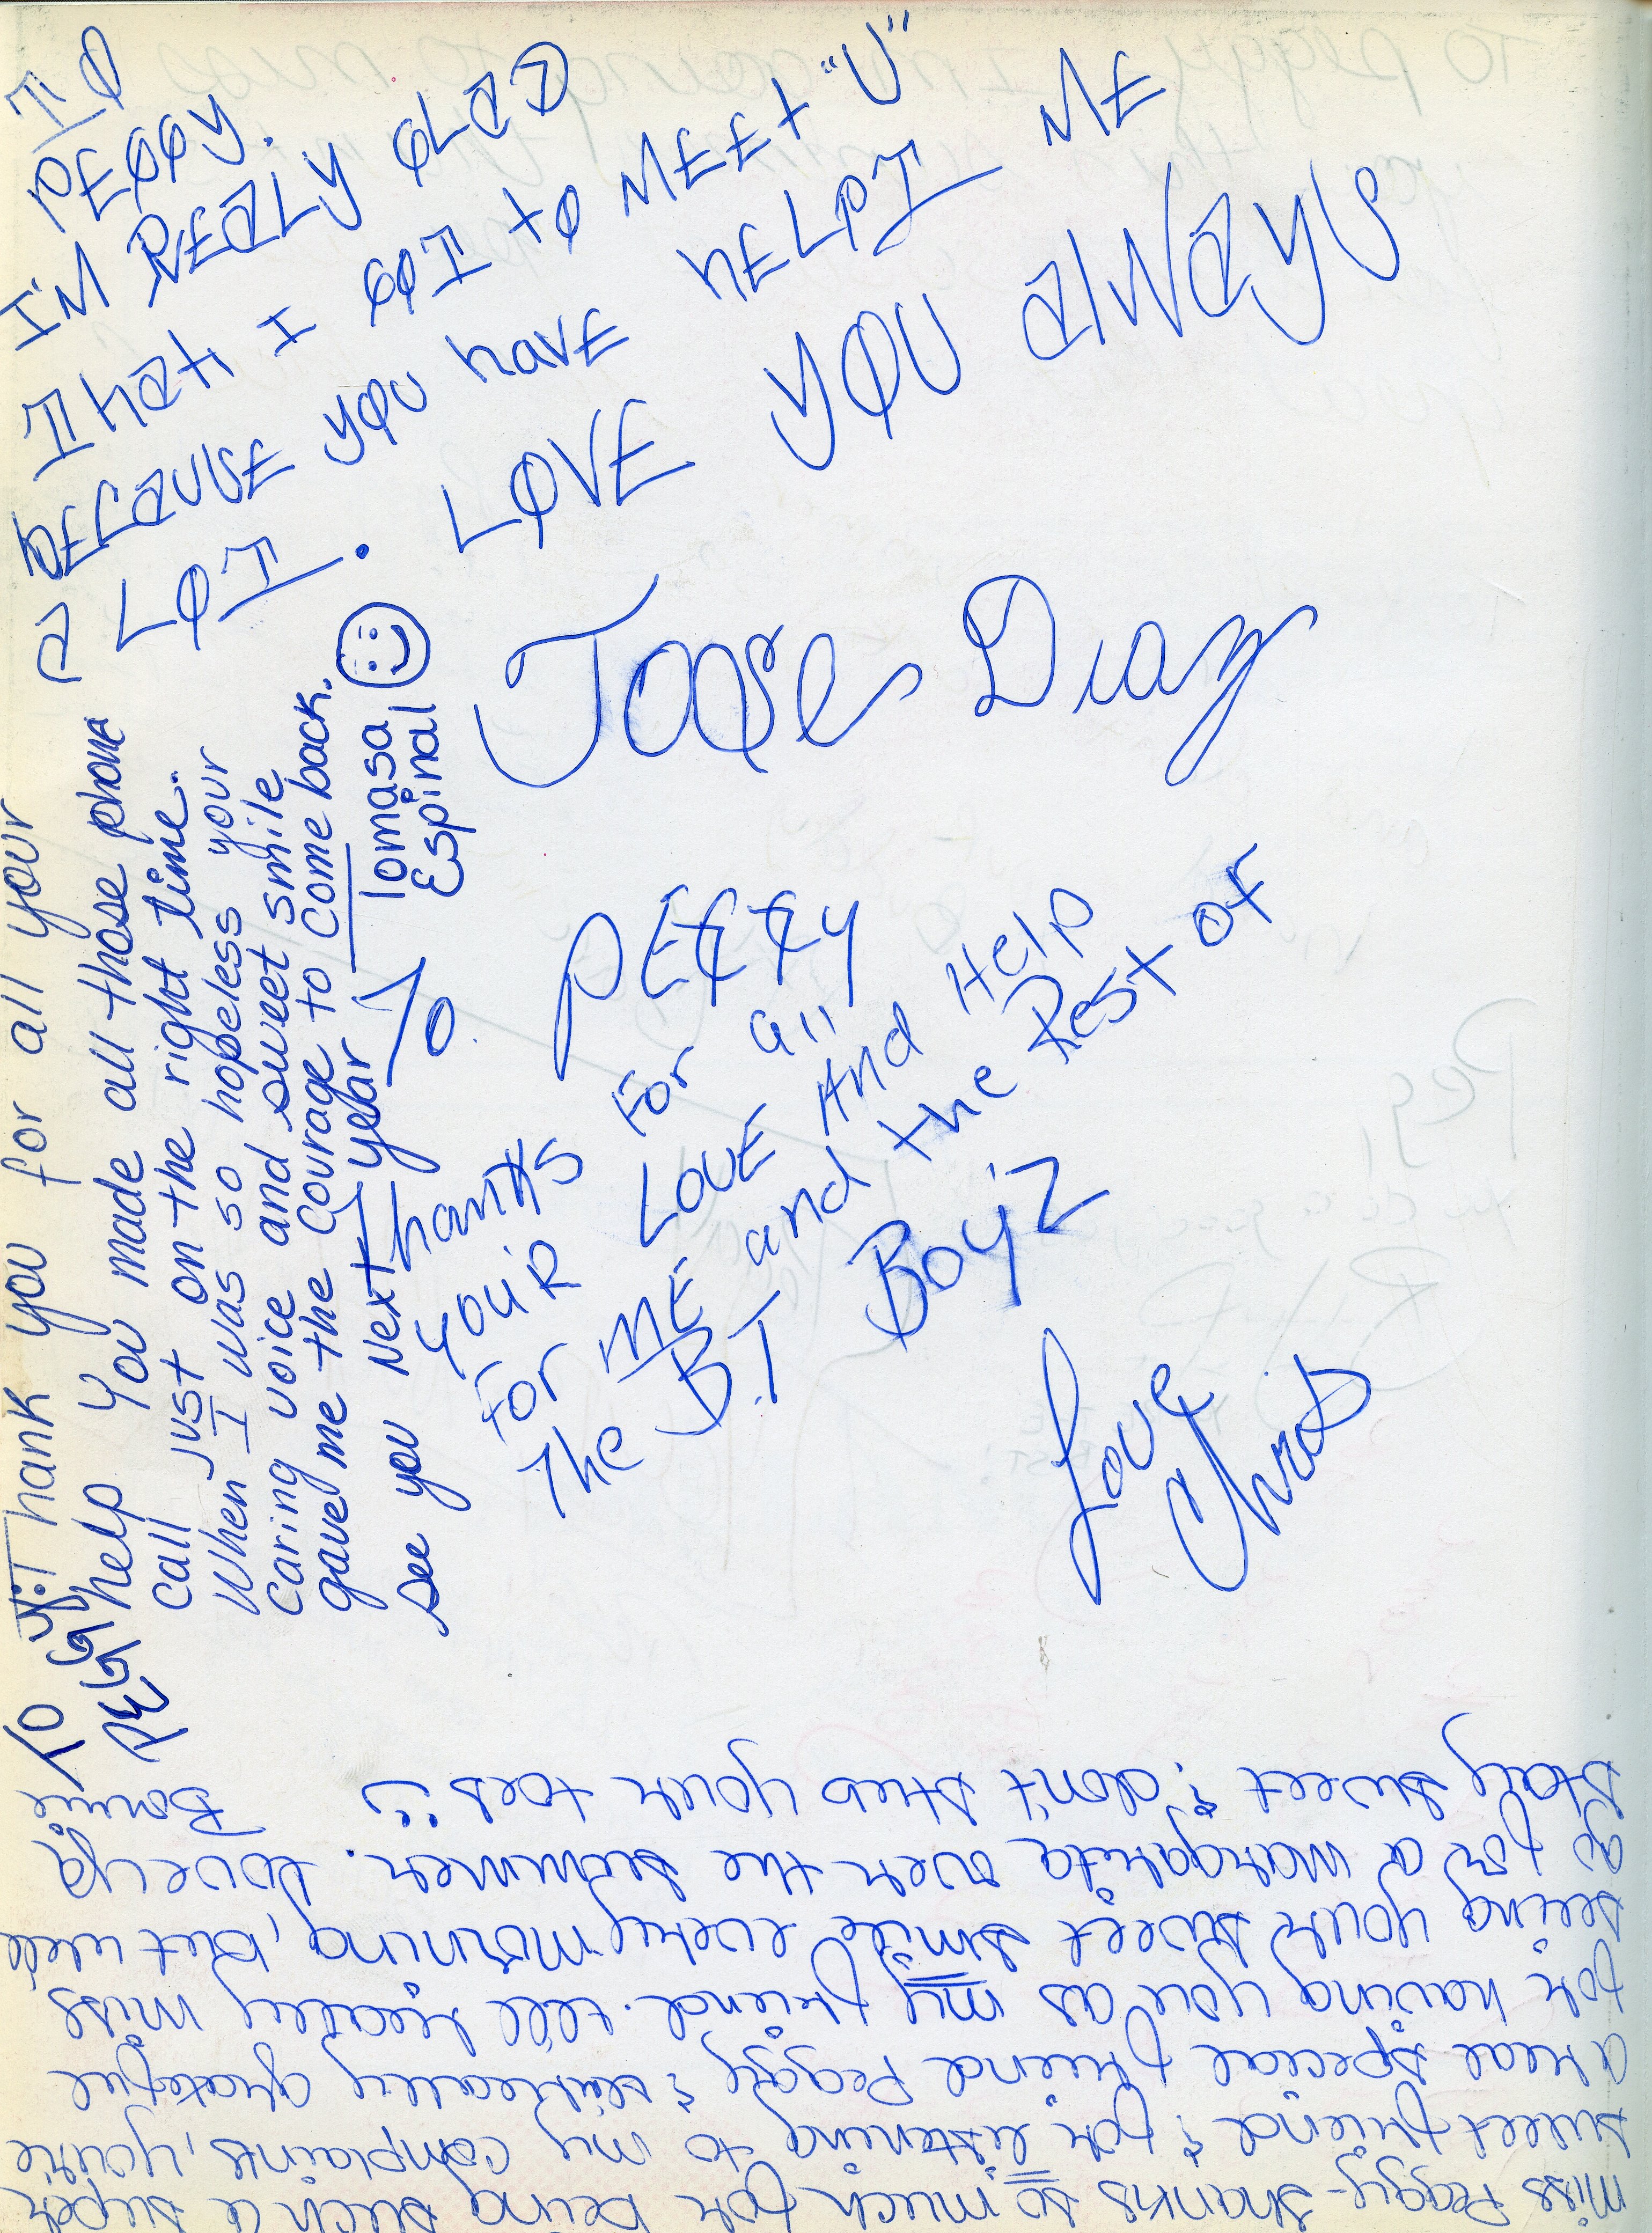 TO
PEGGY.
I'M REALY GLAD
That I GOT tO MEEt "U"
BECAUSE YOU haVE hELPT ME
a LOT. LOVE YOU alWaYS
Jose Diaz
To PEGGY: Thank you for all your
help You made all those phone
call just on the right time.
When I was so hopeless your
caring voice and sweet smile
gave me the courage to come back.
see you Next year
Tomasa
Espinal
To PEGGY
thanks For all
YOUR LOVE And Help
For ME and the Rest OF
The B.T BoyiZ
Love
Chris
Miss Peggy - thanks so much for being such a super
sweet friend & for listening to my complaints, you're
a real special friend Peggy & I'm really grateful
for having you as my friend. I'll really miss
seeing your sweet smile every morning, but we'll
go for a margarita over the summer. Love ya
Stay sweet & don't stub your toes!! Bonnie